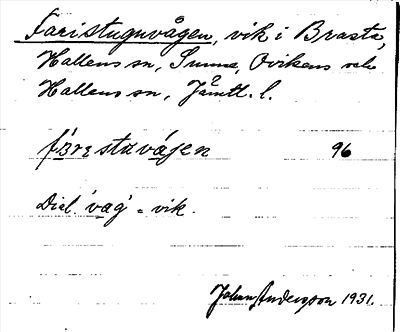 Faristuguvågen, vik i Brasta,
Hallens sn, Sunne, Ovikens och
Hallens sn, Jämtl. l.
2
fǝrestuvåjen 96
Dial. 'vag' = vik.
Johan Andersson 1931.